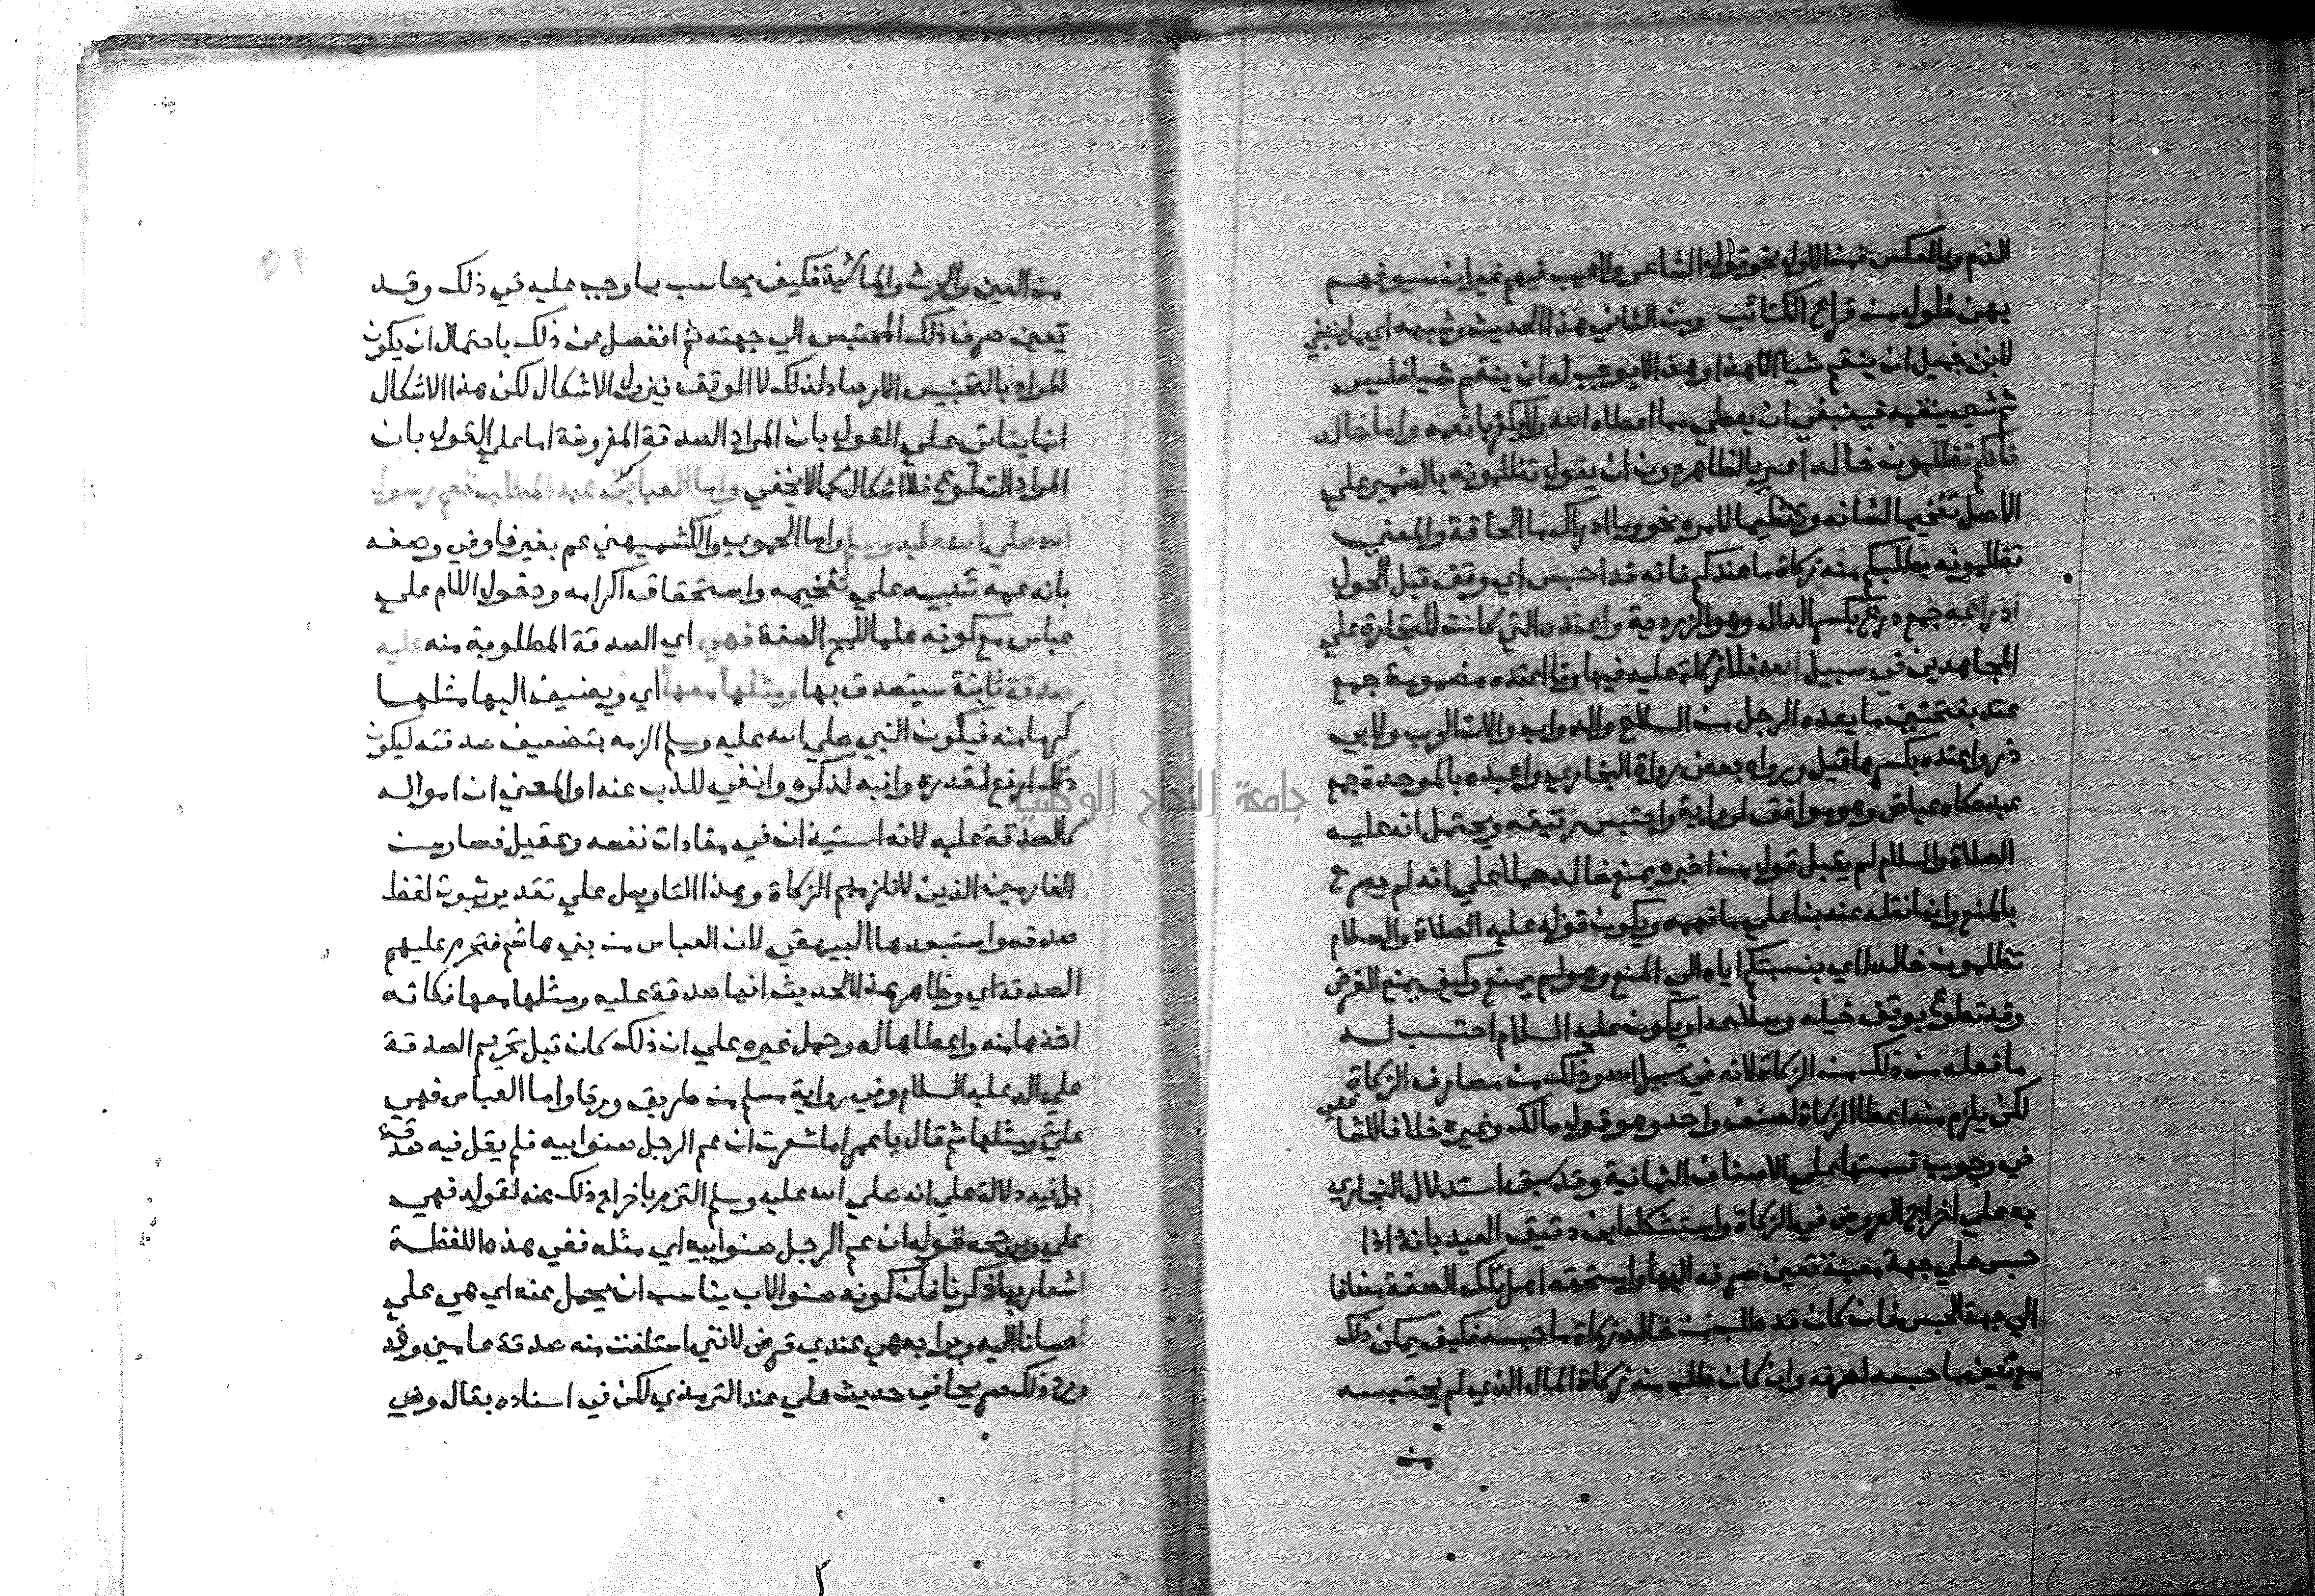 الذم وبالعكس فمن الاول نحو قول الشاعر ولا عيب فيهم غير ان سيوفهم
بهن فلول من قراع الكتائب ومن الثاني هذا الحديث وشبهه اي ما ينبغي
لابن جميل ان ينقم شيا الا هذا وهذا لا يوجب له ان ينقم شيا فليس
ثم شي ينقمه فينبغي ان يعطي مما اعطاه الله ولا يكفر بانعمه واما خالد
فانكم تظلمون خالدا عبر بالظاهر دون ان يقول تظلمونه بالضمير علي
الاصل تفخيما لشانه وتعظيما لامره نحو وما ادراك ما الحاقة والمعني
تظلمونه بطلبكم منه زكاة ما عندكم فانه قد احبس اي وقف قبل الحول
ادراعه جمع درع بكسر الدال وهو الزردية واعتده التي كانت للتجارة علي
المجاهدين في سبيل الله فلا زكاة عليه فيها وتا اعتده مضمومة جمع
عتد بفتحتين ما يعده الرجل من السلاح والدواب والات الحرب ولابي
ذر واعتده بكسرها قيل ورواه بعض رواة البخاري واعبده بالموحدة جمع
عبد حكاه عياض وهو موافق لرواية واحتبس رقيقه ويحتمل انه عليه
الصلاة والسلام لم يقبل قول من اخبره بمنع خالد حملا علي انه لم يصرح
بالمنع وانما نقله عنه بنا علي ما فهمه ويكون قوله عليه الصلاة والسلام
تظلمون خالدا اي بنسبتكم اياه الي المنع وهو لم يمنع وكيف يمنع الفرض
وقد تطوع بوقف خيله وسلاحه او يكون عليه السلام احتسب له
ما فعله من ذلك من الزكاة لانه في سبيل الله وذلك من مصارف الزكاة
لكن يلزم منه اعطا الزكاة لصنف واحد وهو قول مالك وغيره خلافا للشافعي
في وجوب قسمتها علي الاصناف الثمانية وقد سبق استدلال البخاري
به علي اخراج العروض في الزكاة واستشكله ابن دقيق العيد بانه اذا
حبس علي جهة معينة تعين صرفه اليها واستحقه اهل تلك الصفة مضافا
الي جهة الحبس فان كان قد طلب من خالد زكاة ما حبسه فكيف يمكن ذلك
مع تعين ما حبسه لصرفه وان كان طلب منه زكاة المال الذي لم يحتبسه
من
من العين والحرث والماشية فكيف يحاسب بما وجب عليه في ذلك وقد
تعين صرف ذلك المحتبس الي جهته ثم انفصل عن ذلك باحتمال ان يكون
المراد بالتحبيس الارصاد لذلك لا الوقف فيزول الاشكال لكن هذا الاشكال
انما يتاتي علي القول بان المراد الصدقة المفروضة اما علي القول بان
المراد التطوع فلا اشكال كما لا يخفي واما العباس بن عبد المطلب فعم رسول
الله صلي الله عليه وسلم واما الحموي والكشميهني عم بغير فا وفي وصفه
بانه عمه تنبيه علي تفخيمه واستحقاق اكرامه ودخول اللام علي
عباس مع كونه علما للمح الصفة فهي اي الصدقة المطلوبة منه عليه
صدقة ثابتة سيتصدق بها ومثلها معها اي ويضيف اليها مثلها
كرما منه فيكون النبي صلي الله عليه وسلم الزمه بتضعيف صدقته ليكون
ذلك ارفع لقدره وانبه لذكره وانفي للذب عنه او المعني ان امواله
كالصدقة عليه لانه استدان في مفادات نفسه وعقيل فصار من
الغارمين الذين لا تلزمهم الزكاة وهذا التاويل علي تقدير ثبوت لفظ
صدقه واستبعدها البيهقي لان العباس من بني هاشم فتحرم عليهم
الصدقة اي وظاهر هذا الحديث انها صدقة عليه ومثلها معها فكانه
اخذها منه واعطاها له وحمل غيره علي ان ذلك كان قبل تحريم الصدقة
علي اله عليه السلام وفي رواية مسلم من طريق ورقا واما العباس فهي
علي ومثلها ثم قال يا عمر اما شعرت ان عم الرجل صنو ابيه فلم يقل فيه صدقة
بل فيه دلالة علي انه صلي الله عليه وسلم التزم باخراج ذلك عنه لقوله فهي
علي ويرجحه قوله ان عم الرجل صنو ابيه اي مثله ففي هذه اللفظة
اشعار بما ذكرنا فان كونه صنو الاب يناسب ان يحمل عنه اي هي علي
احسانا اليه وبرا به هي عندي قرض لانني استلفت منه صدقة عامين وقد
ورد ذلك صريحا في حديث علي عند الترمذي لكن في اسناده مقال وفي
جامعة النجاح الوطنية